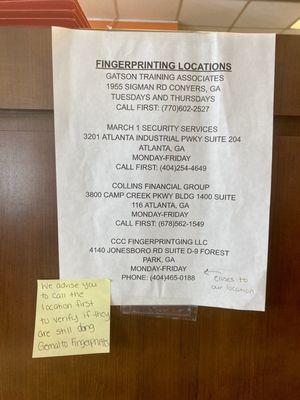 FINGERPRINTING LOCATIONS
GATSON TRAINING ASSOCIATES
1955 SIGMAN RD CONYERS, GA
TUESDAYS AND THURSDAYS
CALL FIRST: (770)602-2527
MARCH 1 SECURITY SERVICES
3201 ATLANTA INDUSTRIAL PWKY SUITE 204
ATLANTA, GA
MONDAY-FRIDAY
CALL FIRST: (404)254-4649
COLLINS FINANCIAL GROUP
3800 CAMP CREEK PKWY BLDG 1400 SUITE
116 ATLANTA, GA
MONDAY-FRIDAY
CALL FIRST: (678)562-1549
CCC FINGERPRINTGING LLC
4140 JONESBORO RD SUITE D-9 FOREST
PARK, GA
MONDAY-FRIDAY
PHONE: (404)465-0188
closes to
our location
We advise you
to call the
location first
to verify if they
are still doing
Gemalto Fingerprints